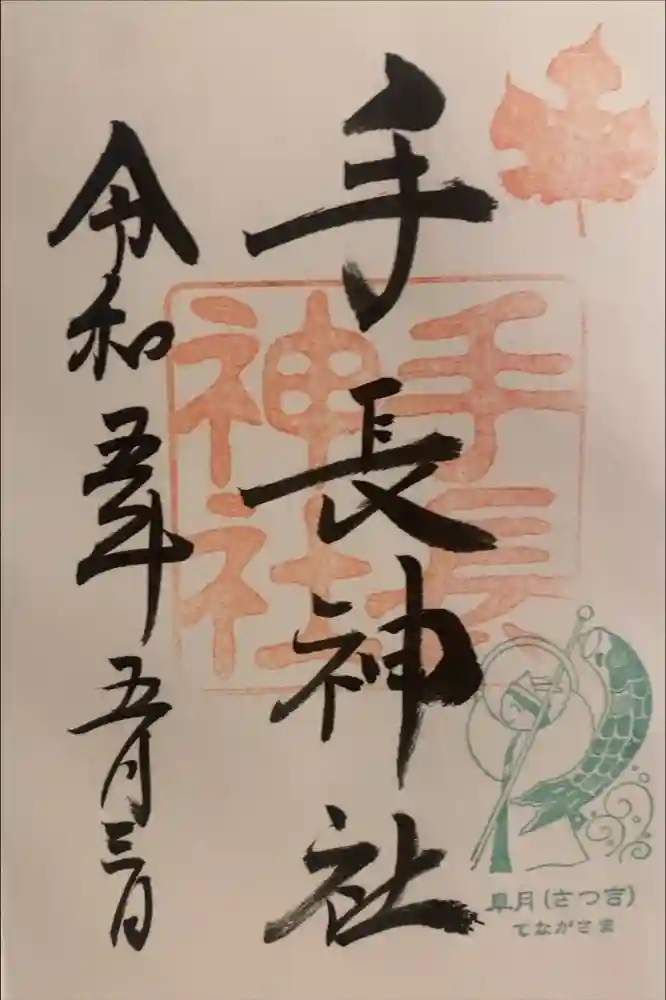 手長神社
手長
神社
令和五年五月三日
皐月(さつ吉)
てながさま